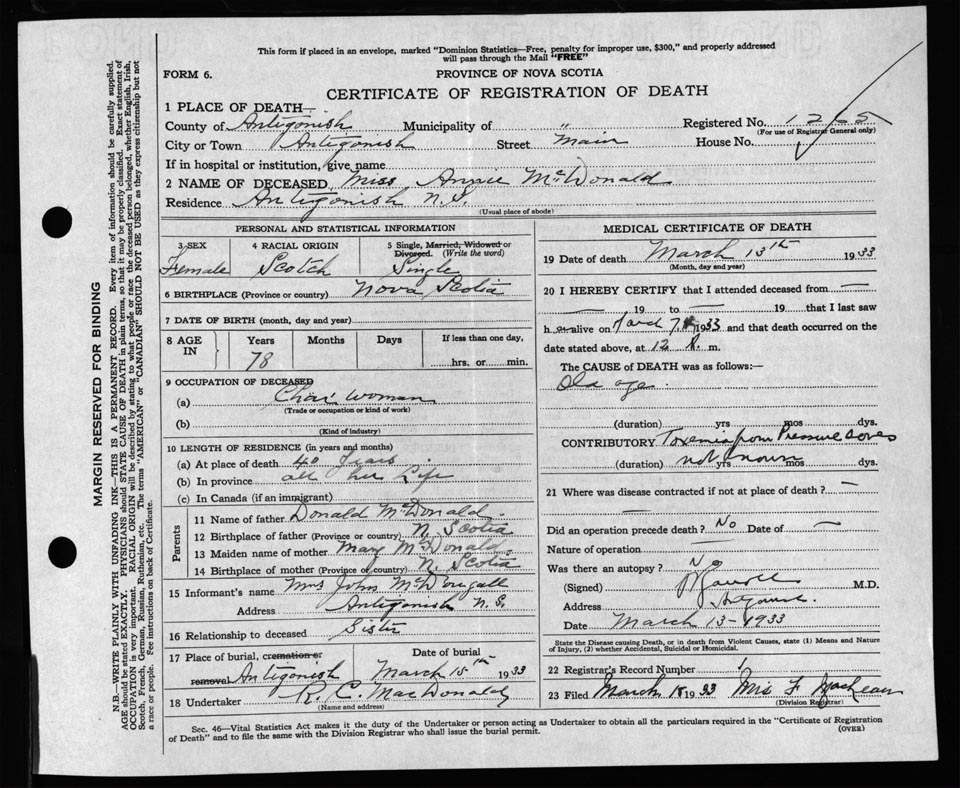 This form if placed in an envelope, marked "Dominion Statistics—Free, penalty for improper use, $300," and properly addressed
will pass through the Mail "FREE"
FORM 6.
PROVINCE OF NOVA SCOTIA
CERTIFICATE OF REGISTRATION OF DEATH
1 PLACE OF DEATH—
County of Antigonish Municipality of " Registered No. 1265
(For use of Registrar General only)
City or Town Antigonish Street Main House No.
If in hospital or institution, give name
2 NAME OF DECEASED Miss Annie McDonald
Residence Antigonish N.S.
(Usual place of abode)
PERSONAL AND STATISTICAL INFORMATION
3 SEX 4 RACIAL ORIGIN 5 Single, Married, Widowed or
Divorced. (Write the word)
Female Scotch Single
6 BIRTHPLACE (Province or country) Nova Scotia
7 DATE OF BIRTH (month, day and year)
8 AGE IN Years Months Days If less than one day,
78 hrs. or min.
9 OCCUPATION OF DECEASED
(a) Char woman
(Trade or occupation or kind of work)
(b)
(Kind of industry)
10 LENGTH OF RESIDENCE (in years and months)
(a) At place of death 40 Years
(b) In province all her Life
(c) In Canada (if an immigrant)
Parents
11 Name of father Donald McDonald
12 Birthplace of father (Province or country) N. Scotia
13 Maiden name of mother Mary McDonald
14 Birthplace of mother (Province or country) N. Scotia
15 Informant's name Mrs John McDougall
Address Antigonish N.S.
16 Relationship to deceased Sister
17 Place of burial, cremation or Date of burial
removal Antigonish March 15th 1933
18 Undertaker R. C. MacDonald
(Name and address)
MEDICAL CERTIFICATE OF DEATH
19 Date of death March 13th 1933
(Month, day and year)
20 I HEREBY CERTIFY that I attended deceased from —
— 19 to — 19 that I last saw
h alive on 1933 and that death occurred on the
date stated above, at 12 m.
The CAUSE of DEATH was as follows:—
Old age.
(duration) yrs mos dys.
CONTRIBUTORY Toxemia from Pressure Sores
(duration) not known yrs mos dys.
21 Where was disease contracted if not at place of death? —
Did an operation precede death? No Date of —
Nature of operation —
Was there an autopsy? No
(Signed) M.D.
Address
Date March 13-1933
State the Disease causing Death, or in death from Violent Causes, state (1) Means and Nature
of Injury, (2) whether Accidental, Suicidal or Homicidal.
22 Registrar's Record Number 1
23 Filed March 18 1933 Mrs F
(Division Registrar)
Sec. 46—Vital Statistics Act makes it the duty of the Undertaker or person acting as Undertaker to obtain all the particulars required in the "Certificate of Registration
of Death" and to file the same with the Division Registrar who shall issue the burial permit.
(OVER)
MARGIN RESERVED FOR BINDING
N.B.—WRITE PLAINLY WITH UNFADING INK—THIS IS A PERMANENT RECORD. Every item of information should be carefully supplied.
AGE should be stated EXACTLY. PHYSICIANS should STATE CAUSE OF DEATH in plain terms, so that it may be properly classified. Exact statement of
OCCUPATION is very important. RACIAL ORIGIN will be described by stating to what people or race the deceased person belonged, whether English, Irish,
Scotch, French, German, Russian, Ruthenian, etc. The terms "AMERICAN" or "CANADIAN" SHOULD NOT BE USED as they express citizenship but not
a race or people. See instructions on back of Certificate.